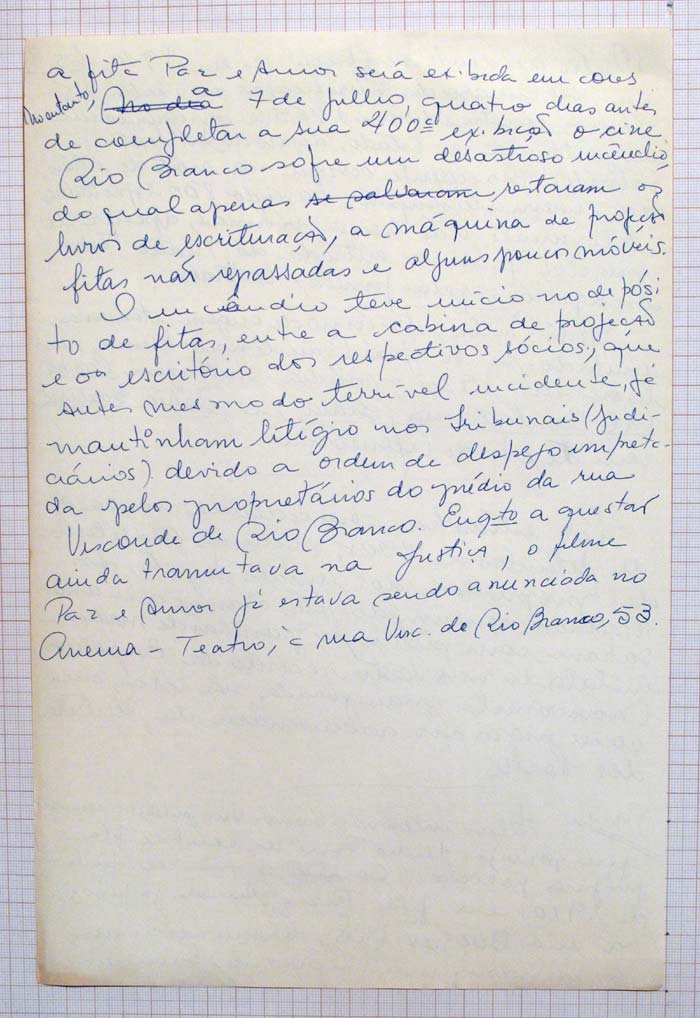 a fita Paz e Amor será exibida em cores
No entanto, No dia a 7 de julho, quatro dias antes
de completar a sua 400ª exibição o cine
Rio Branco sofre um desastroso incêndio,
do qual apenas se salvaram, restaram os
livros de escrituração, a máquina de projeção
fitas não repassadas e alguns poucos móveis.
O incêndio teve início no depósi-
to de fitas, entre a cabina de projeção
e o escritório dos respectivos sócios, que
antes mesmo do terrível incidente, já
mantinham litígio nos tribunais (judi-
ciários) devido a ordem de despejo impetra-
da pelos proprietários do prédio da rua
Visconde de Rio Branco. Enqto a questão
ainda tramitava na Justiça, o filme
Paz e Amor já estava sendo anunciada no
Cinema-Teatro, à rua Visc. de Rio Branco, 53.